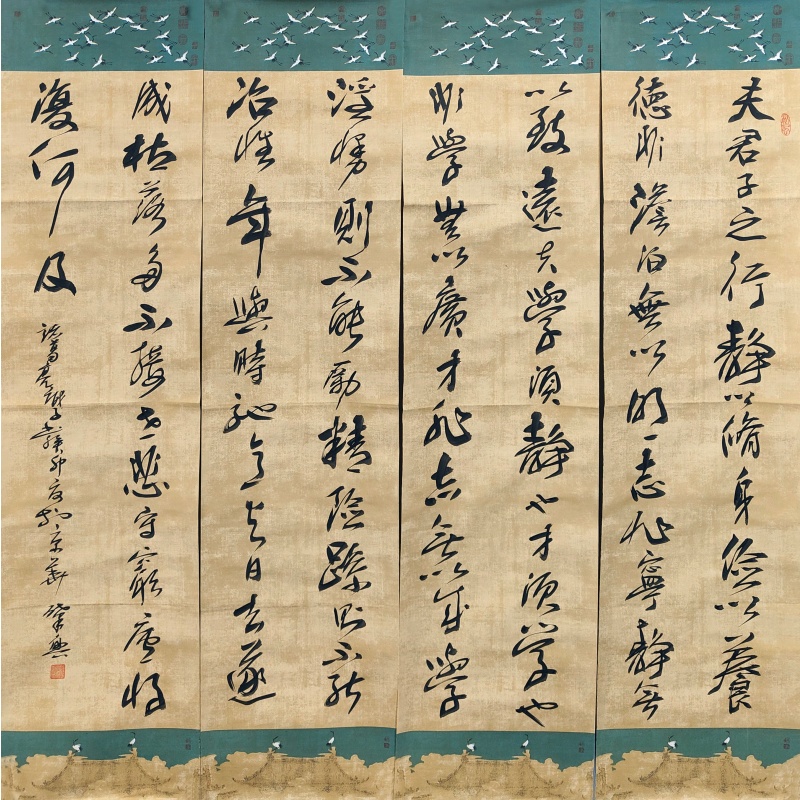 夫君子之行靜以脩身儉以養
德非澹泊無以明志非寧靜無
以致遠夫學須靜也才須學也
非學無以廣才非志無以成學
淫慢則不能勵精險躁則不能
冶性年與時馳意與日去遂
成枯落多不接世悲守窮廬將
復何及
諸葛亮誡子書癸卯夏於京華